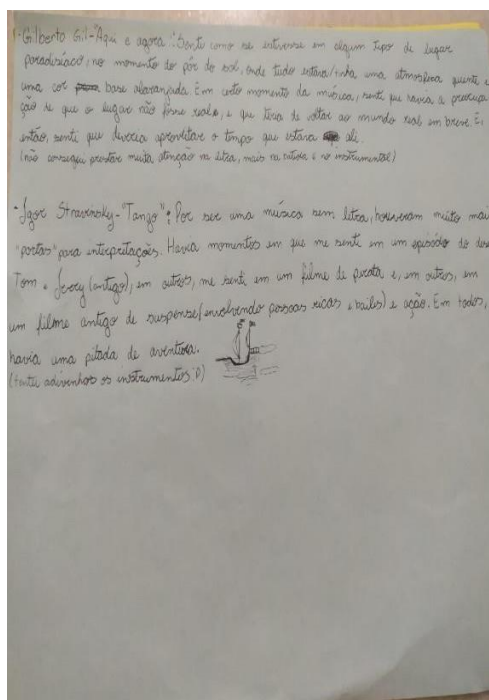 1-Gilberto Gil-"Aqui e agora": Senti como se estivesse em algum tipo de lugar
paradisíaco, no momento do pôr do sol, onde tudo estava/tinha uma atmosfera quente e
uma cor base alaranjada. Em certo momento da música, senti que havia a preocupa
ção de que o lugar não fosse real, e que teria de voltar ao mundo real em breve. E,
então, senti que deveria aproveitar o tempo que estava ali.
(não consegui prestar muita atenção na letra, mais na e no instrumental)
-Igor Stravinsky-"Tango": Por ser uma música sem letra, houveram muito mais
"portas" para interpretações. Havia momentos em que me senti em um episódio do
Tom e Jerry (antigo), em outros, me senti em um filme de pirata e, em outros, em
um filme antigo de suspense (envolvendo pessoas ricas e bailes) e ação. Em todos,
havia uma pitada de aventura.
(tentei adivinhar os instrumentos :D)